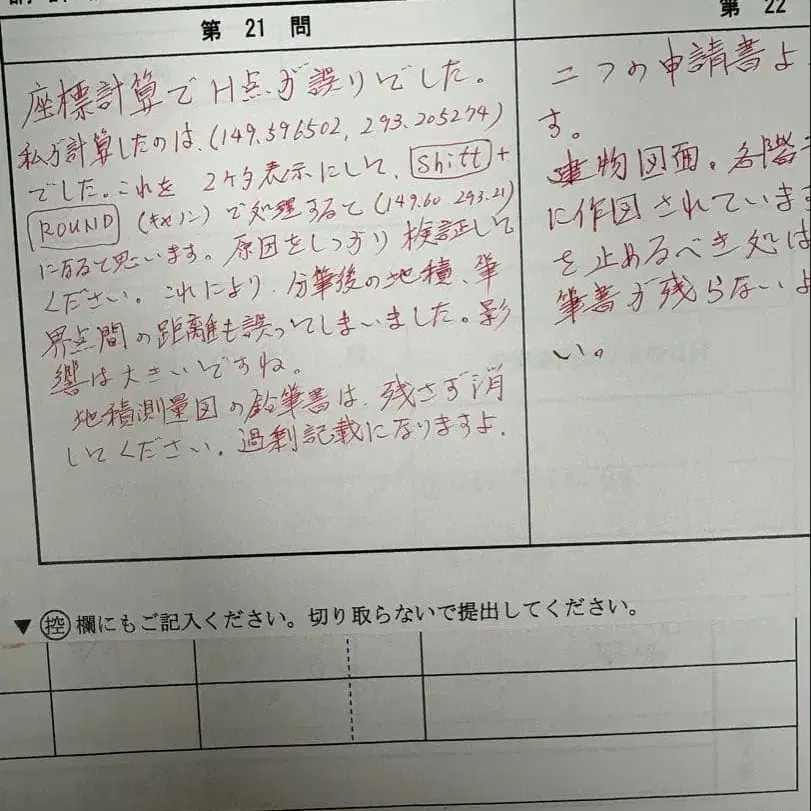 第 21 問
座標計算でH点が誤りでした。
私が計算したのは、(149.596502, 293.205274)
でした。これを 2ケタ表示にして、Shift+
ROUND (キャノン) で処理すると (149.60 293.21)
になると思います。原因をしっかり検証して
ください。これにより、分筆後の地積、筆
界点間の距離も誤ってしまいました。影
響は大きいですね。
地積測量図の鉛筆書は、残さず消
してください。過剰記載になりますよ.
第 22
二つの申請書よ
す。
建物図面、各階
に作図されています
を止めるべき処は
筆書が残らないよ
い。
▼ 控 欄にもご記入ください。切り取らないで提出してください。